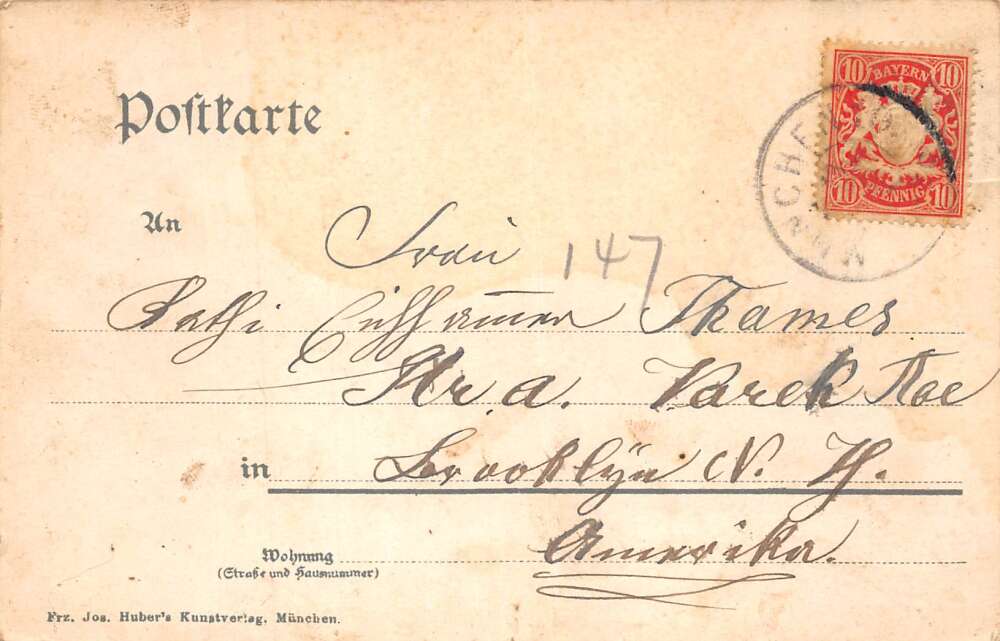 Postkarte
10 BAYERN 10
10 PFENNIG 10
MÜNCHEN
An
Frau
147
Kathi Eichhammer Thames
Str. a. Varek Ave
in Brooklyn N. Y.
Amerika.
Wohnung
(Straße und Hausnummer)
Frz. Jos. Huber's Kunstverlag, München.